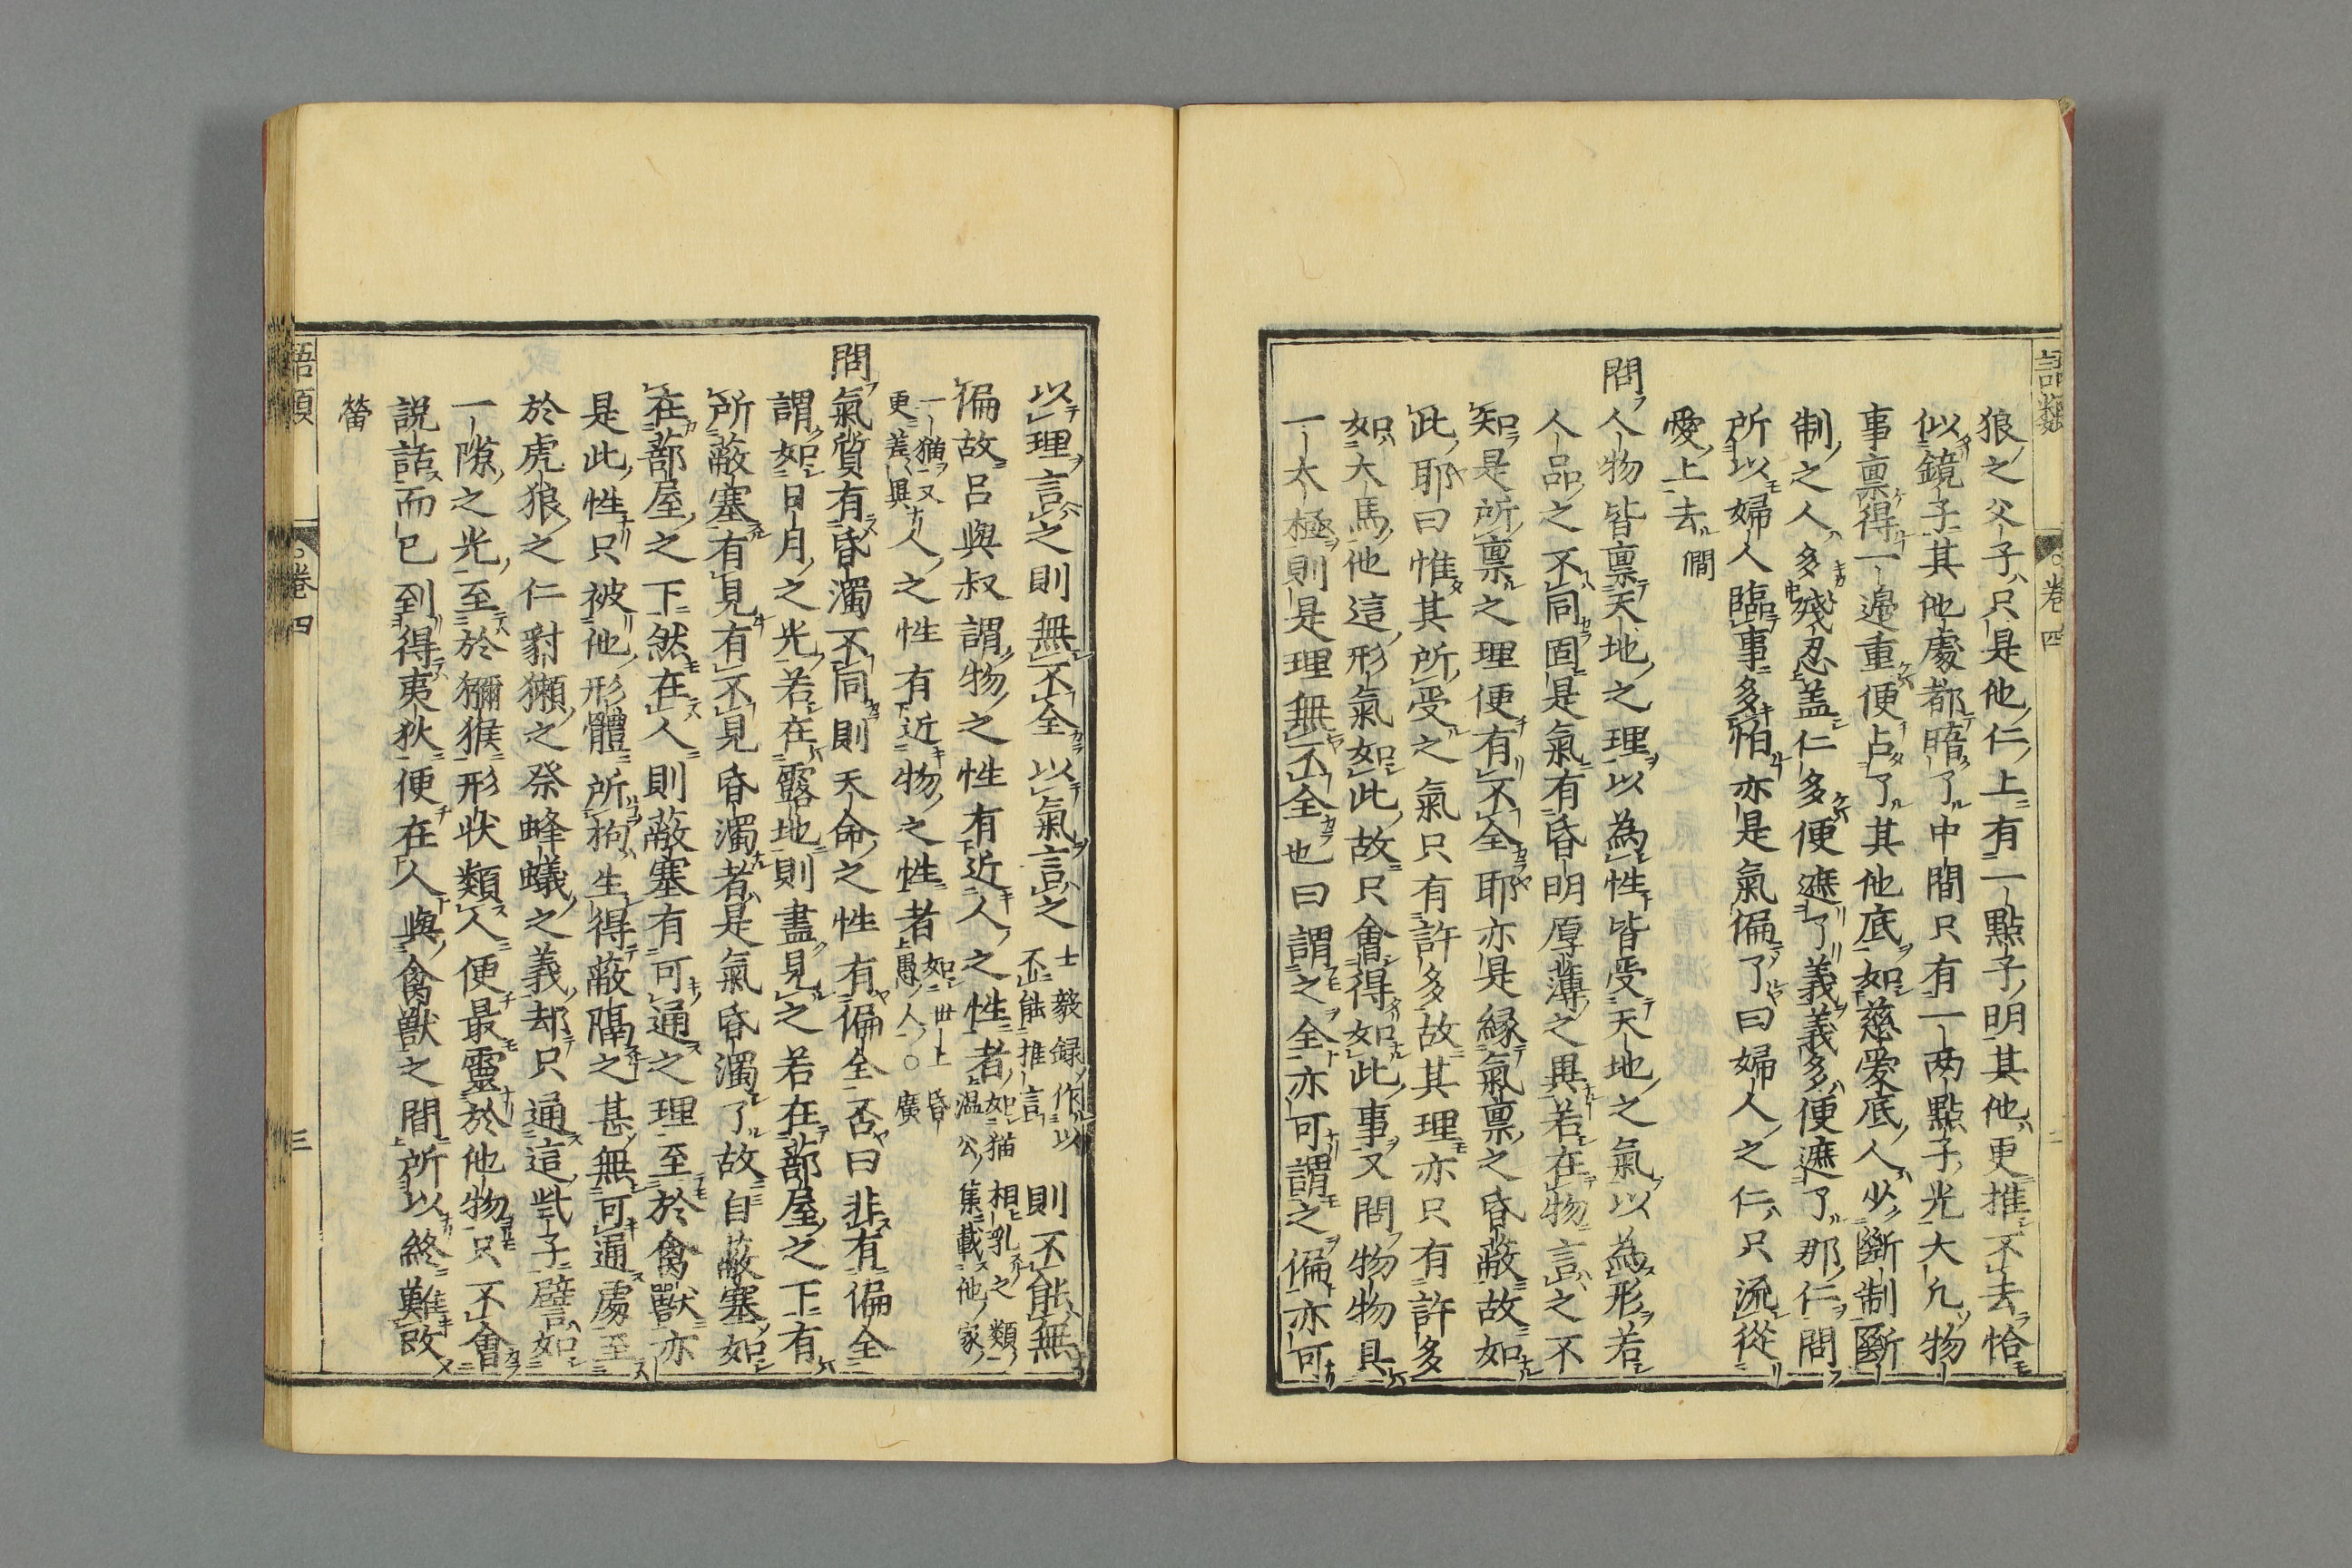 語類　卷四
狼之父子只是他仁上有一點子明其他更推不去恰
似鏡子其他處都暗了中間只有一兩點子光大凡物
事禀得一邊重便占了其他底如慈愛底人少斷制斷
制之人多殘忍盖仁多便遮了義義多便遮了那仁問
所以婦人臨事多怕亦是氣偏了曰婦人之仁只流從
愛上去僩
問人物皆禀天地之理以為性皆受天地之氣以為形若
人品之不同固是氣有昏明厚薄之異若在物言之不
知是所禀之理便有不全耶亦是緣氣禀之昏蔽故如
此耶曰惟其所受之氣只有許多故其理亦只有許多
如犬馬他這形氣如此故只會得如此事又問物物具
一太極則是理無不全也曰謂之全亦可謂之偏亦可
以理言之則無不全以氣言之士毅録作以不能推言則不能無
偏故呂與叔謂物之性有近人之性者如猫相乳之類温公集載他家
一猫又更差異人之性有近物之性者如世上昏愚人○廣
問氣質有昏濁不同則天命之性有偏全否曰非有偏全
謂如日月之光若在露地則盡見之若在蔀屋之下有
所蔽塞有見有不見昏濁者是氣昏濁了故自蔽塞如
在蔀屋之下然在人則蔽塞有可通之理至於禽獸亦
是此性只被他形體所拘生得蔽隔之甚無可通處至
於虎狼之仁豺獺之祭蜂蟻之義却只通這些子譬如
一隙之光至於獼猴形状類人便最靈於他物只不會
説話而已到得夷狄便在人與禽獸之間所以終難改
㽦
語類　卷四　三